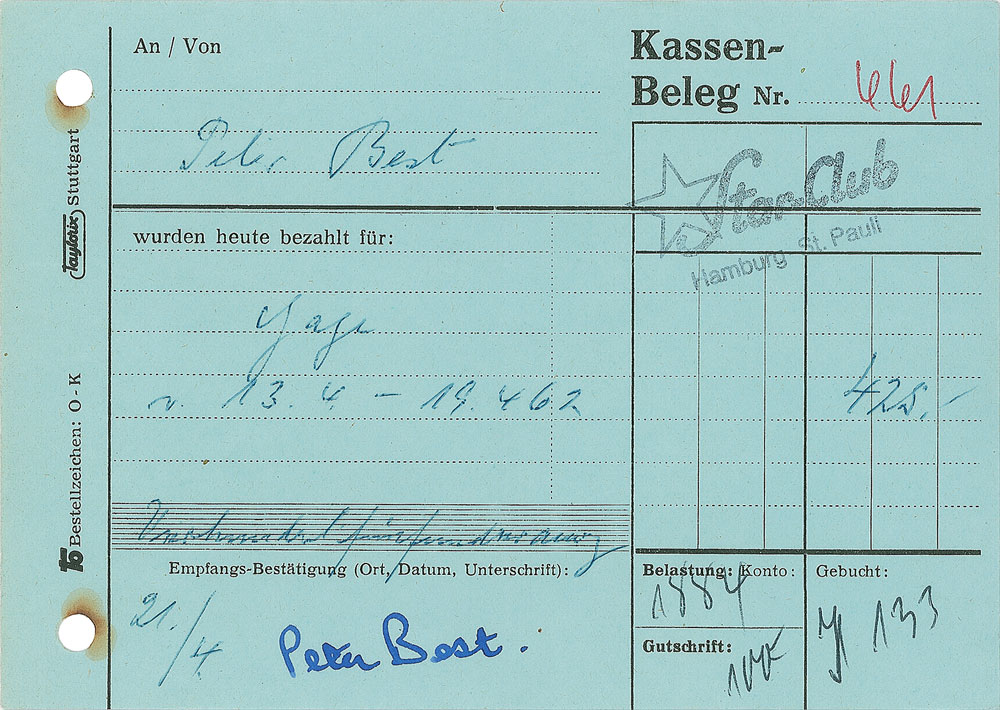 An / Von
Kassen-
Beleg Nr. 441
Peter Best
Star-Club
Hamburg St. Pauli
wurden heute bezahlt für:
Gage
v. 13.4. – 19.462
425.–
Vierhundertfünfundzwanzig
Empfangs-Bestätigung (Ort, Datum, Unterschrift):
Belastung: Konto:
Gebucht:
1884
21./4.
Peter Best.
133
Gutschrift:
Taylorix Stuttgart
Bestellzeichen: O - K